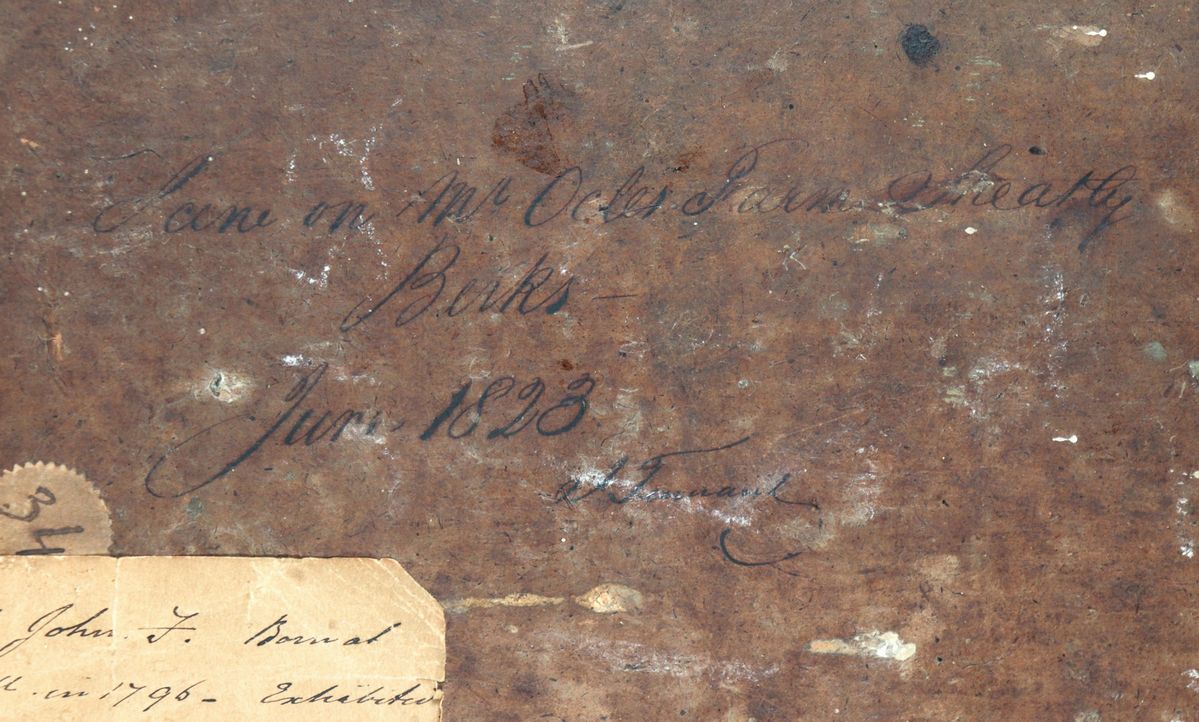 Scene on Mr Ocles Farm Wheatly
Berks –
June 1823
J Tennant
34
John. F. Born at
in 1796 – Exhibited